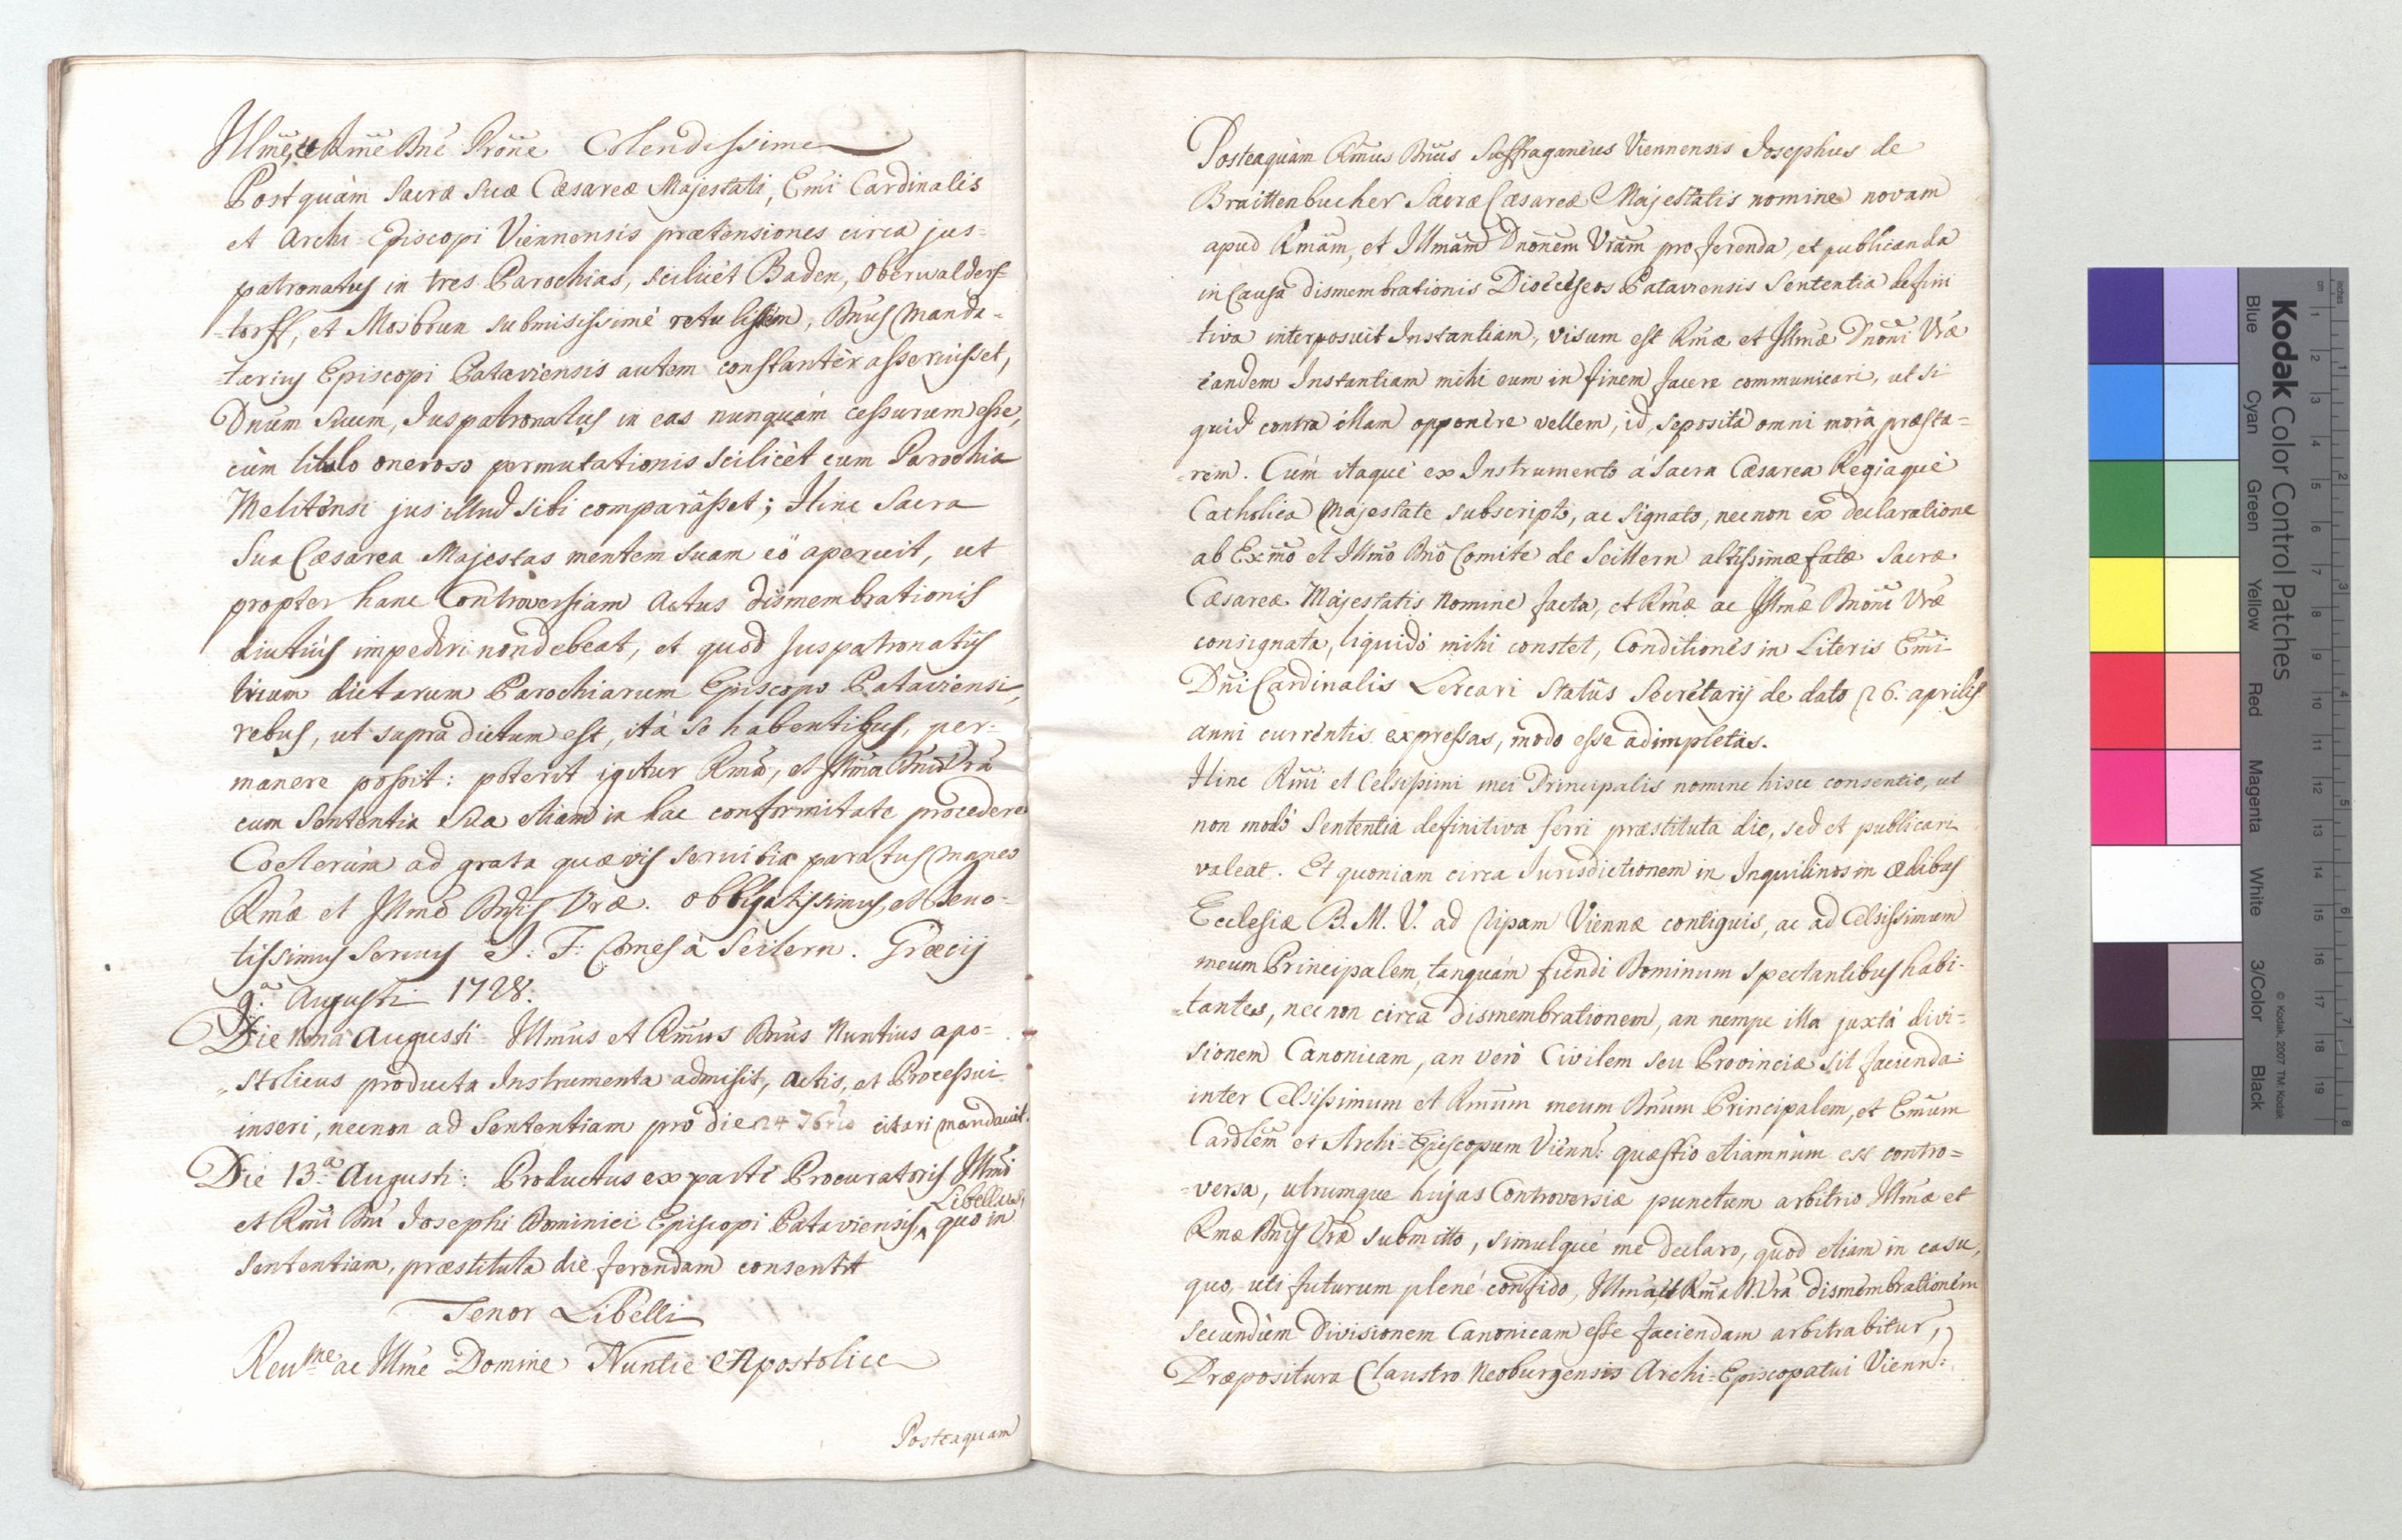 Illm̃e, et Rm̃e Dñe Prõne Colendissime
Postquàm Sacræ Suæ Cæsareæ Majestati, Emi Cardinalis
et Archi=Episcopi Viennensis prætensiones circa jus=
patronatus in tres Parochias, scilicèt Baden, Oberwalders=
=torff, et Mosbrun submisissimè retulissem, Dnus Manda=
=tarius Episcopi Pataviensis autem constantèr asseruisset,
Dnum Suum, Juspatronatus in eas nunquàm cessurum esse,
cùm titulo oneroso permutationis scilicèt cum Parochia
Melitensi jus illud sibi comparâsset; Hinc Sacra
Sua Cæsarea Majestas mentem suam eò aperuit, ut
propter hanc Controversiam Actus dismembrationis
diutiùs impediri non debeat, et quod Juspatronatûs
trium dictarum Parochiarum Episcopo Pataviensi,
rebus, ut supra dictum est, ità se habentibus, per=
manere possit: poterit igitur Rm̃a, et Illm̃a Dnõ Vrã
cum Sententia Sua etiam in hac conformitate procedere
Coeterùm ad grata quævis servitia paratus maneo
Rmæ et Illmæ Dnis Vræ. obbligatissimus, et Devo=
tissimus Servus J: F: Comes à Seilern. Græcij
9.a Augusti 1728.
Die Nona Augusti Illmus et Rm̃us Dnus Nuntius apo=
=stolicus producta Instrumenta admisit, actis, et Processui
inseri, necnon ad Sententiam pro die 24 7bris citari mandavit.
Die 13.a Augusti: Productus ex parte Procuratoris Illmi
Libellus,
et Rm̃i Dni Josephi Dominici Episcopi Pataviensis, quo in
Sententiam, præstituta die ferendam consentit
Tenor Libelli
Reume ac Illmè Domine Nuntie Apostolice
Posteaquam
Posteaquàm Rm̃us Dnus Suffraganeus Viennensis Josephus de
Braittenbucher Sacræ Cæsareæ Majestatis nomine novam
apud Rmãm, et Illmãm Dnõnem Vrãm pro ferenda, et publicanda
in Causa dismembrationis Dioeceseos Pataviensis Sententia defini
=tiva interposuit Instantiam, visum est Rmæ et Illmæ Dnõni Vræ
eandem Instantiam mihi eum in finem facere communicari, ut si
quid contra illam opponere vellem, id, seposità omni morâ præsta=
=rem. Cùm itaque ex Instrumento à Sacra Cæsarea Regiaque
Catholica Majestate subscripto, ac signato, necnon ex declaratione
ab Exm̃o et Illmo Dno Comite de Seillern altissimæfatæ Sacræ
Cæsareæ Majestatis Nomine facta, et Rmæ ac Illmæ Dnõni Vræ
consignata, liquidò mihi constet, Conditiones in Literis Em̃i
Dñi Cardinalis Lercari Statûs Secretarij de dato 26. aprilis
anni currentis expressas, modo esse adimpletas.
Hinc Rm̃i et Celsissimi mei Principalis nomine hisce consentio, ut
non modò Sententia definitiva ferri præstituta die, sed et publicari
valeat. Et quoniam circa Jurisdictionem in Inquilinos in ædibus
Ecclesiæ B. M. V. ad ripam Viennæ contiguis, ac ad Celsissimum
meum Principalem, tanquàm fundi Dominum spectantibus habi=
=tantes, necnon circa dismembrationem, an nempe illa juxtà divi=
sionem Canonicam, an verò Civilem seu Provinciæ sit facienda:
inter Celsissimum et Rm̃um meum Dnum Principalem, et Em̃um
Cardlem et Archi=Episcopum Vienn: quæstio etiamnùm est contro=
=versa, utrumque hujus Controversiæ punctum arbitrio Illmæ et
Rmæ Dnis Vræ submitto, simulque me declaro, quod etiam in casu,
quo, uti futurum plenè confido, Illma, et Rm̃a D. Vra dismembrationem
secundùm Divisionem Canonicam esse faciendam arbitrabitur,
Præpositura Claustro Neoburgensis Archi=Episcopatui Vienn:
Kodak Color Control Patches
Blue Cyan Green Yellow Red Magenta White 3/Color Black
© Kodak, 2007 TM: Kodak
inches 1 2 3 4 5 6 7 8
cm 1 2 3 4 5 6 7 8 9 10 11 12 13 14 15 16 17 18 19